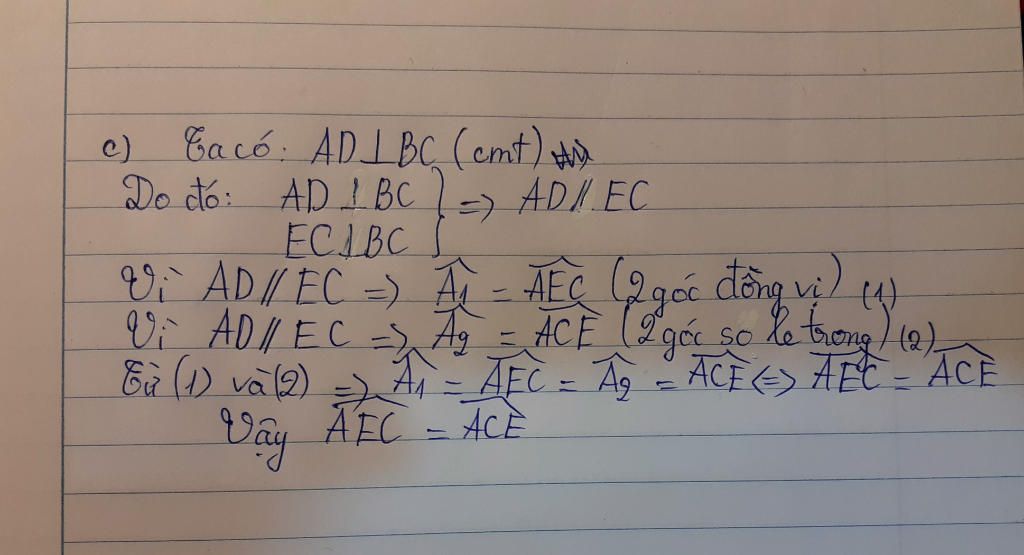 c) Ta có: AD⊥BC (cmt)
Do đó: AD⊥BC } => AD // EC
EC⊥BC
Vì AD // EC => Â1 = AEC (2 góc đồng vị) (1)
Vì AD // EC => Â2 = ACE (2 góc so le trong) (2)
Từ (1) và (2) => Â1 = AEC = Â2 = ACE <=> AEC = ACE
Vậy AEC = ACE